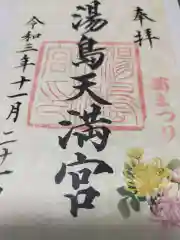 奉拝
湯島天満宮
令和三年十一月二十一
菊まつり